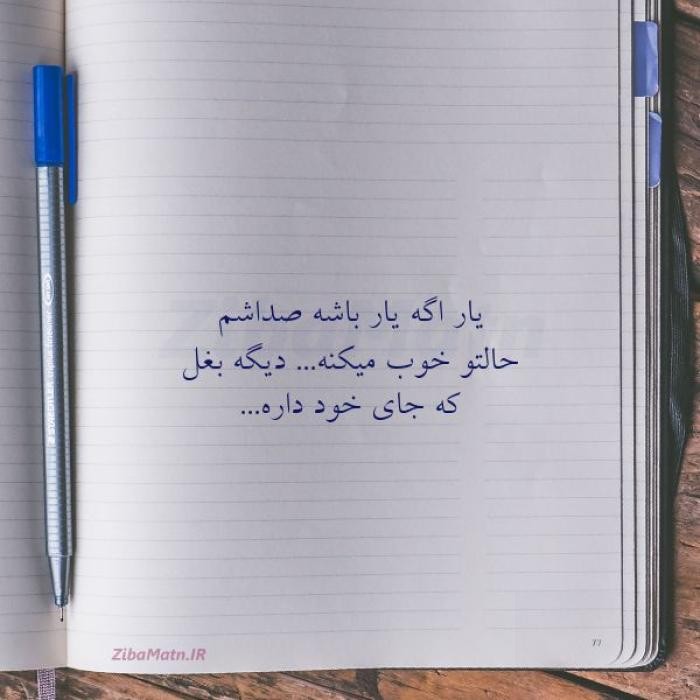 یار اگه یار باشه صداشم
حالتو خوب میکنه... دیگه بغل
که جای خود داره...
ZibaMatn.IR
ZibaMatn
STAEDTLER triplus fineliner